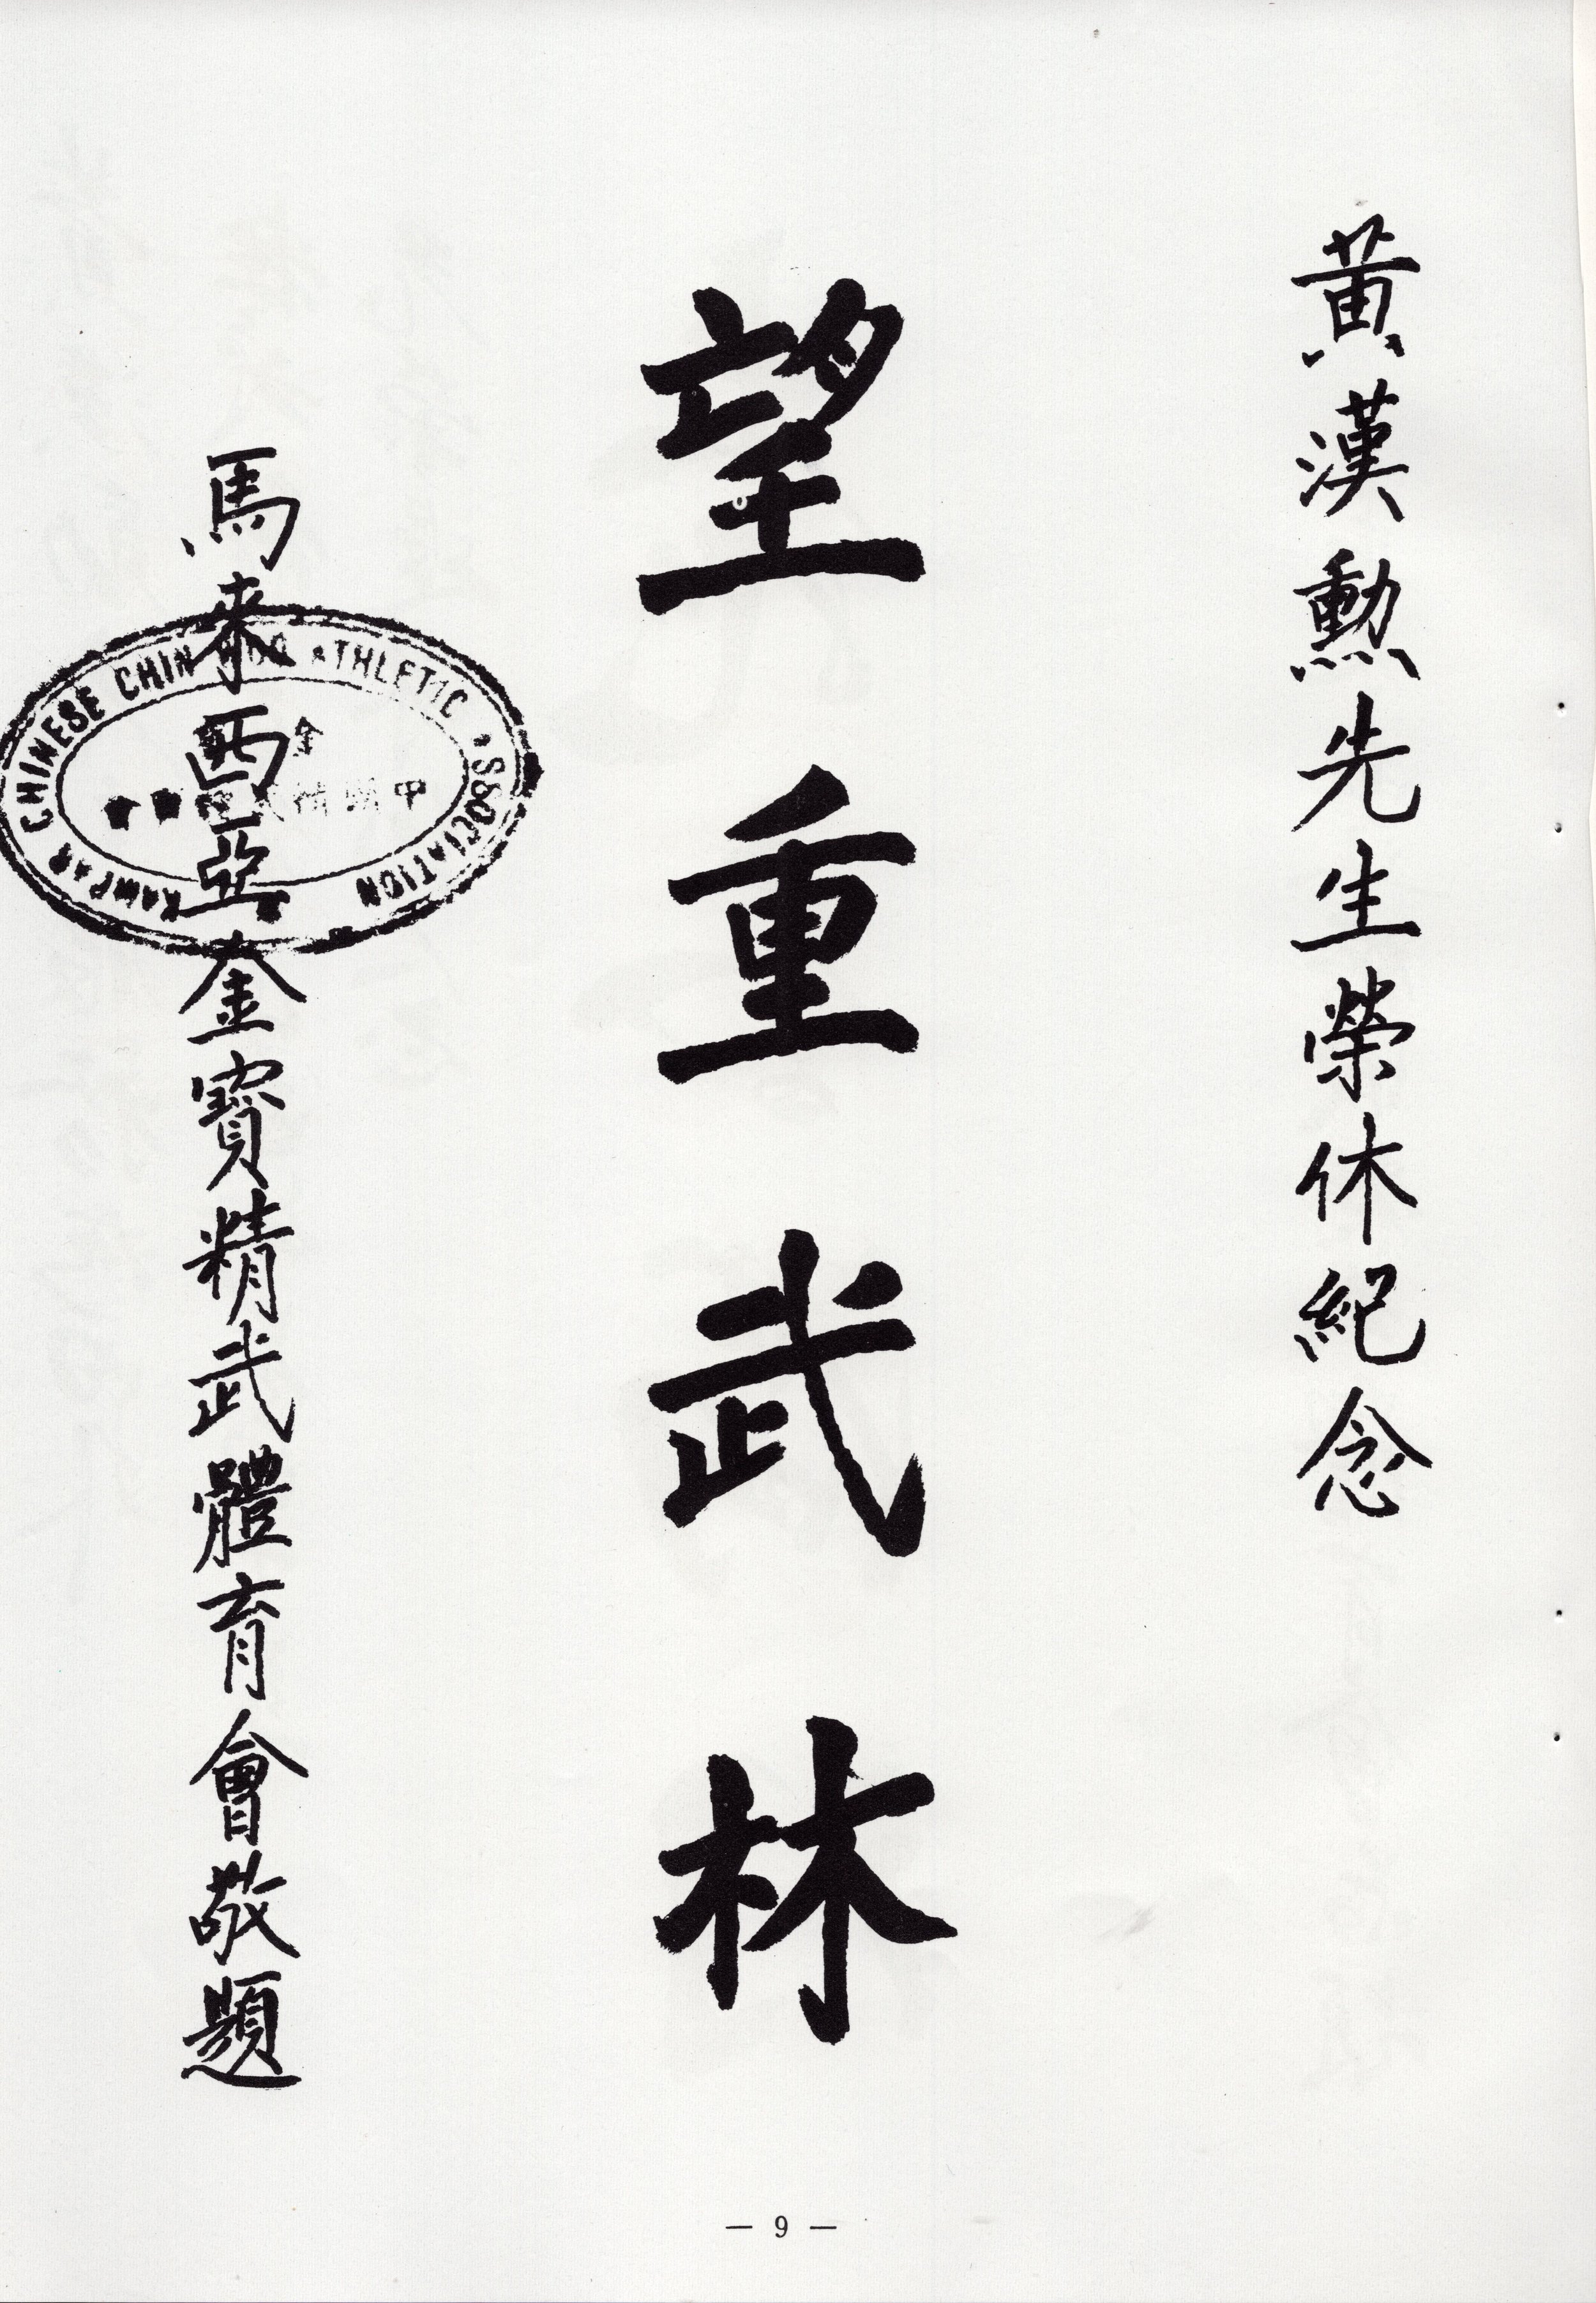 黃漢勳先生榮休紀念
望重武林
馬來西亞金寶精武體育會敬題
KAMPAR CHINESE CHIN WOO ATHLETIC ASSOCIATION
— 9 —